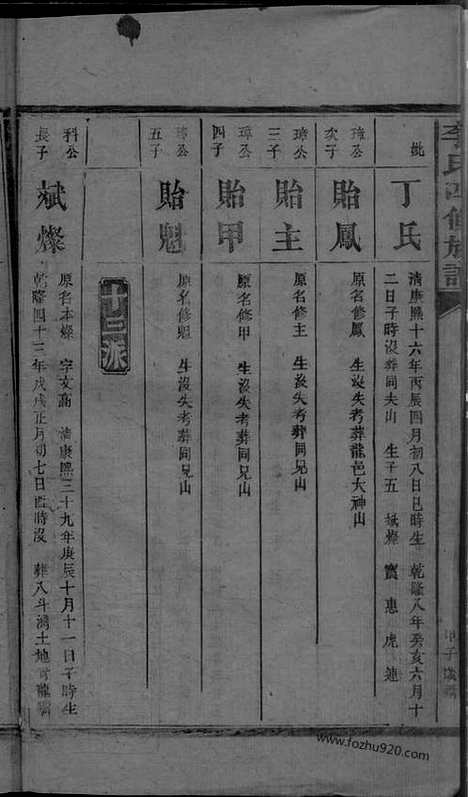 李氏四修族譜
妣
丁氏
清康熙十六年丙辰四月初八日巳時生 乾隆八年癸亥六月十
二日子時沒葬同夫山 生子五 斌燦 寶 惠 虎 連
璋公
次子
貽鳳
原名修鳳 生沒失考葬龍邑大神山
璋公
三子
貽主
原名修主 生沒失考葬同兄山
璋公
四子
貽甲
原名修甲 生沒失考葬同兄山
璋公
五子
貽魁
原名修魁 生沒失考葬同兄山
十三派
科公
長子
斌燦
原名本燦 字文 清康熙三十九年庚辰十月十一日子時生
乾隆四十三年戊戌正月初七日時沒 葬八斗灣土地
甲子歲
www.fozhu920.com